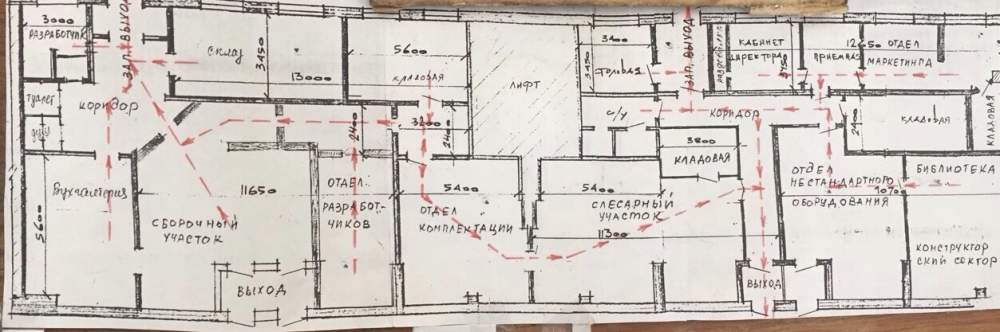 3000
РАЗРАБОТЧИК
ЗАП. ВЫХОД
СКЛАД
3450
13000
5600
КЛАДОВАЯ
ЛИФТ
3100
3450
ЗАП. ВЫХОД
КАБИНЕТ
ДИРЕКТОРА
3750
ПРИЕМНАЯ
12650 ОТДЕЛ
МАРКЕТИНГА
ТУАЛЕТ
КОРИДОР
ДУШ
2400
3200
2400
С/У
КОРИДОР
3800
КЛАДОВАЯ
2400
КЛАДОВАЯ
КЛАДОВАЯ
БУХГАЛТЕРИЯ
5600
11650
СБОРОЧНЫЙ
УЧАСТОК
ВЫХОД
ОТДЕЛ
РАЗРАБОТ-
ЧИКОВ
5400
ОТДЕЛ
КОМПЛЕКТАЦИИ
5400
СЛЕСАРНЫЙ
УЧАСТОК
11300
ВЫХОД
ОТДЕЛ
НЕСТАНДАРТНОГО
ОБОРУДОВАНИЯ
БИБЛИОТЕКА
КОНСТРУКТОР
СКИЙ СЕКТОР